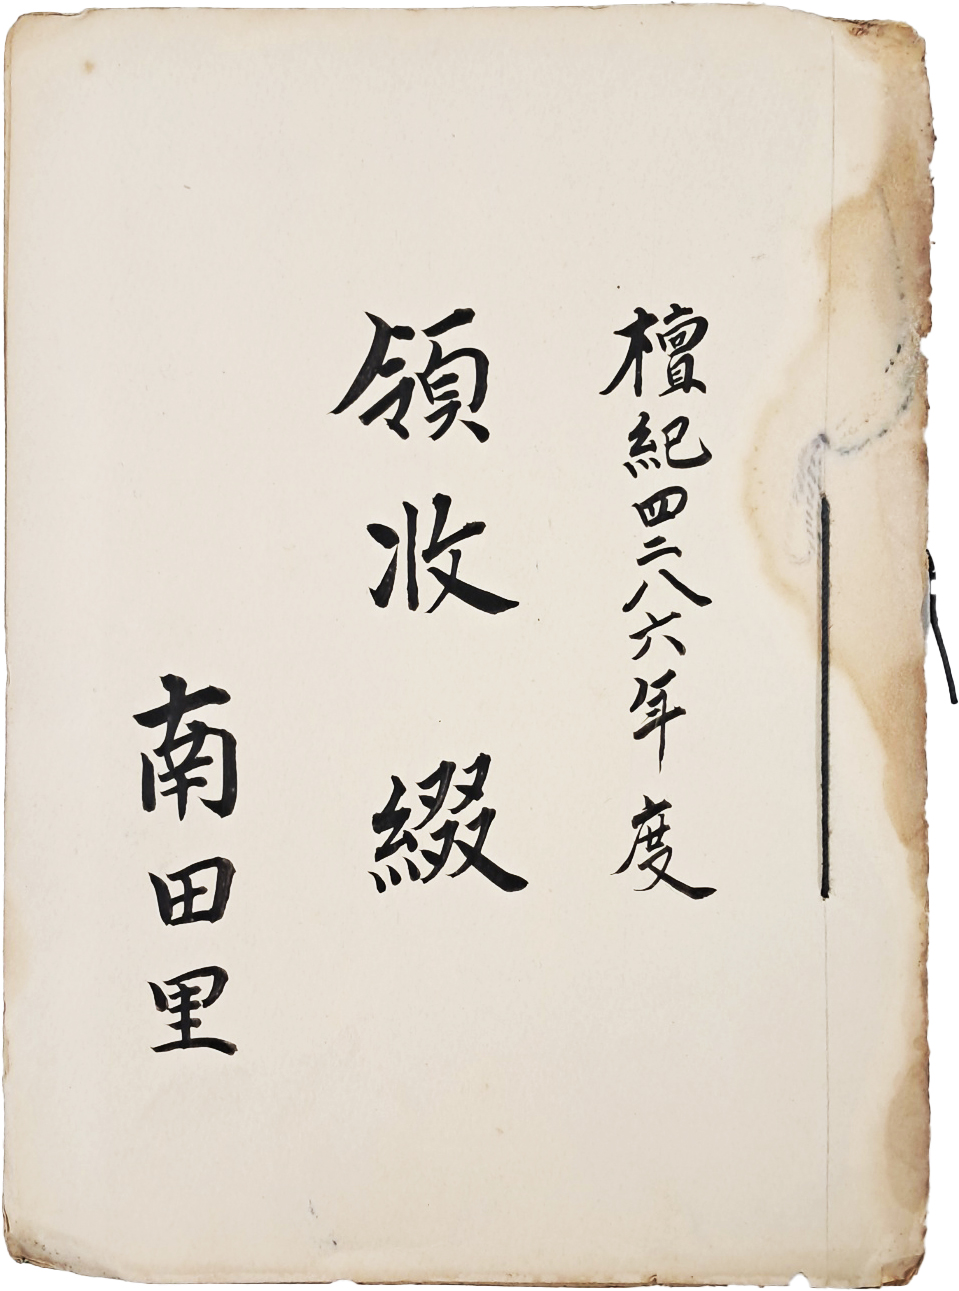 檀紀四二八六年度
領收綴
南田里